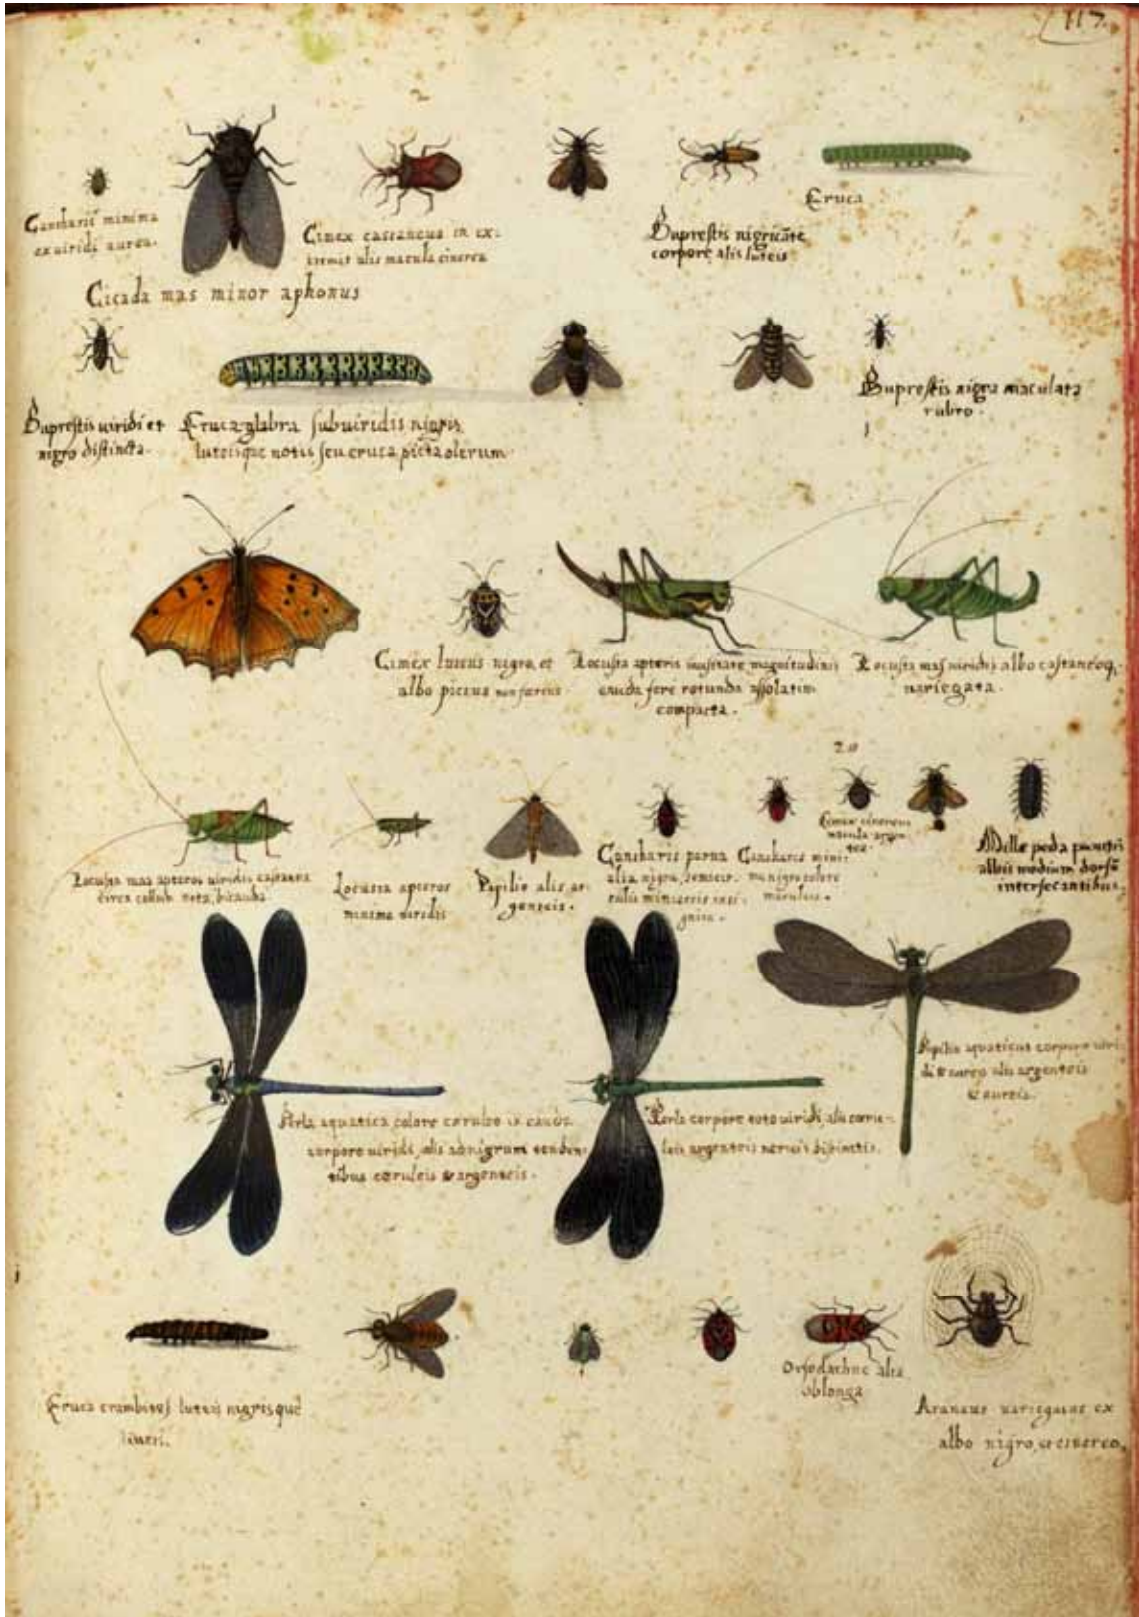 117.
Cantharis minima
ex viridi aurea.
Cimex castaneus in ex-
tremis alis macula cinerea
Buprestis nigricāte
corpore alis luteis
Eruca
Cicada mas minor aphonus
Buprestis viridi et
nigro distincta.
Eruca glabra subviridis nigris
luteisque notis seu eruca picta olerum
Buprestis nigra maculata
rubro.
Cimex luteus nigro, et
albo pictus non
Locusta apteris inusitate magnitudinis
cauda fere rotunda
compacta.
Locusta mas viridis albo castaneoq,
variegata.
20
Locusta mas apteros viridis castanea
circa collum nota, bicauda
Locusta apteros
minima viridis
Papilio alis ar-
genteis.
Cantharis parva
alis nigris, semicir-
culis miniaceis insi-
gnita.
Cantharis mini-
ma nigro colore
maculis.
Cimex cinereus
macula argen-
tea.
Millepeda punctis
albis medium dorsū
intersecantibus.
Perla aquatica colore ceruleo in cauda
corpore viridi, alis ad nigrum tenden-
tibus ceruleis & argenteis.
Perla corpore toto viridi, alis ceru-
leis argenteis nervis distinctis.
Papilio aquaticus corpore viri-
di & aureo alis argenteis
& aureis.
Eruca crambites luteis nigrisque
Orsodachne alis
oblonga
Araneus variegatus ex
albo nigro, et cinereo,